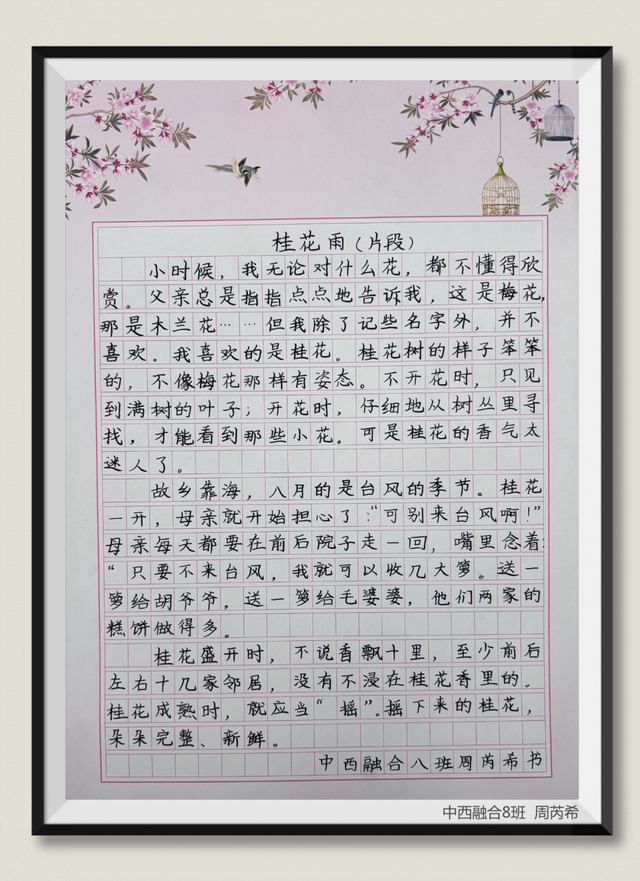 桂花雨(片段)
小时候,我无论对什么花,都不懂得欣
赏。父亲总是指指点点地告诉我,这是梅花,
那是木兰花……但我除了记些名字外,并不
喜欢。我喜欢的是桂花。桂花树的样子笨笨
的,不像梅花那样有姿态。不开花时,只见
到满树的叶子;开花时,仔细地从树丛里寻
找,才能看到那些小花。可是桂花的香气太
迷人了。
故乡靠海,八月的是台风的季节。桂花
一开,母亲就开始担心了:“可别来台风啊!”
母亲每天都要在前后院子走一回,嘴里念着:
“只要不来台风,我就可以收几大箩。送一
箩给胡爷爷,送一箩给毛婆婆,他们两家的
糕饼做得多。
桂花盛开时,不说香飘十里,至少前后
左右十几家邻居,没有不浸在桂花香里的。
桂花成熟时,就应当“摇”。摇下来的桂花,
朵朵完整、新鲜。
中西融合八班周芮希书
中西融合8班 周芮希